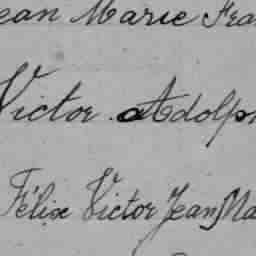 ean Marie Fra
Victor Adolph
Félix Victor Jean Ma